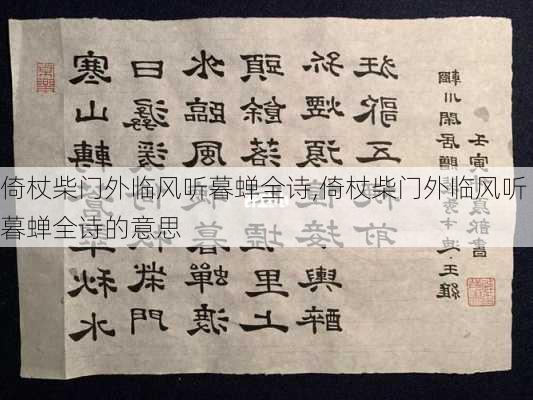 倚杖柴门外临风听暮蝉全诗,倚杖柴门外临风听
暮蝉全诗的意思
寒山轉蒼秋水
日潺湲柴門
外臨風暮蟬渡
頭餘落墟里上
孤煙復接輿醉
狂歌五前
輞川閑居贈秀才迪 王維
壬寅夏書